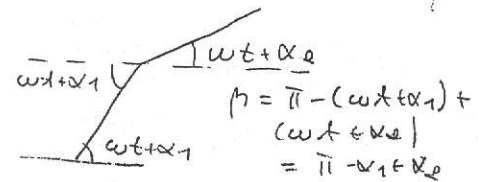 ωt+α2
ωt+α1
ωt+α1
β = π-(ωt+α1)+
(ωt+α2)
= π-α1+α2